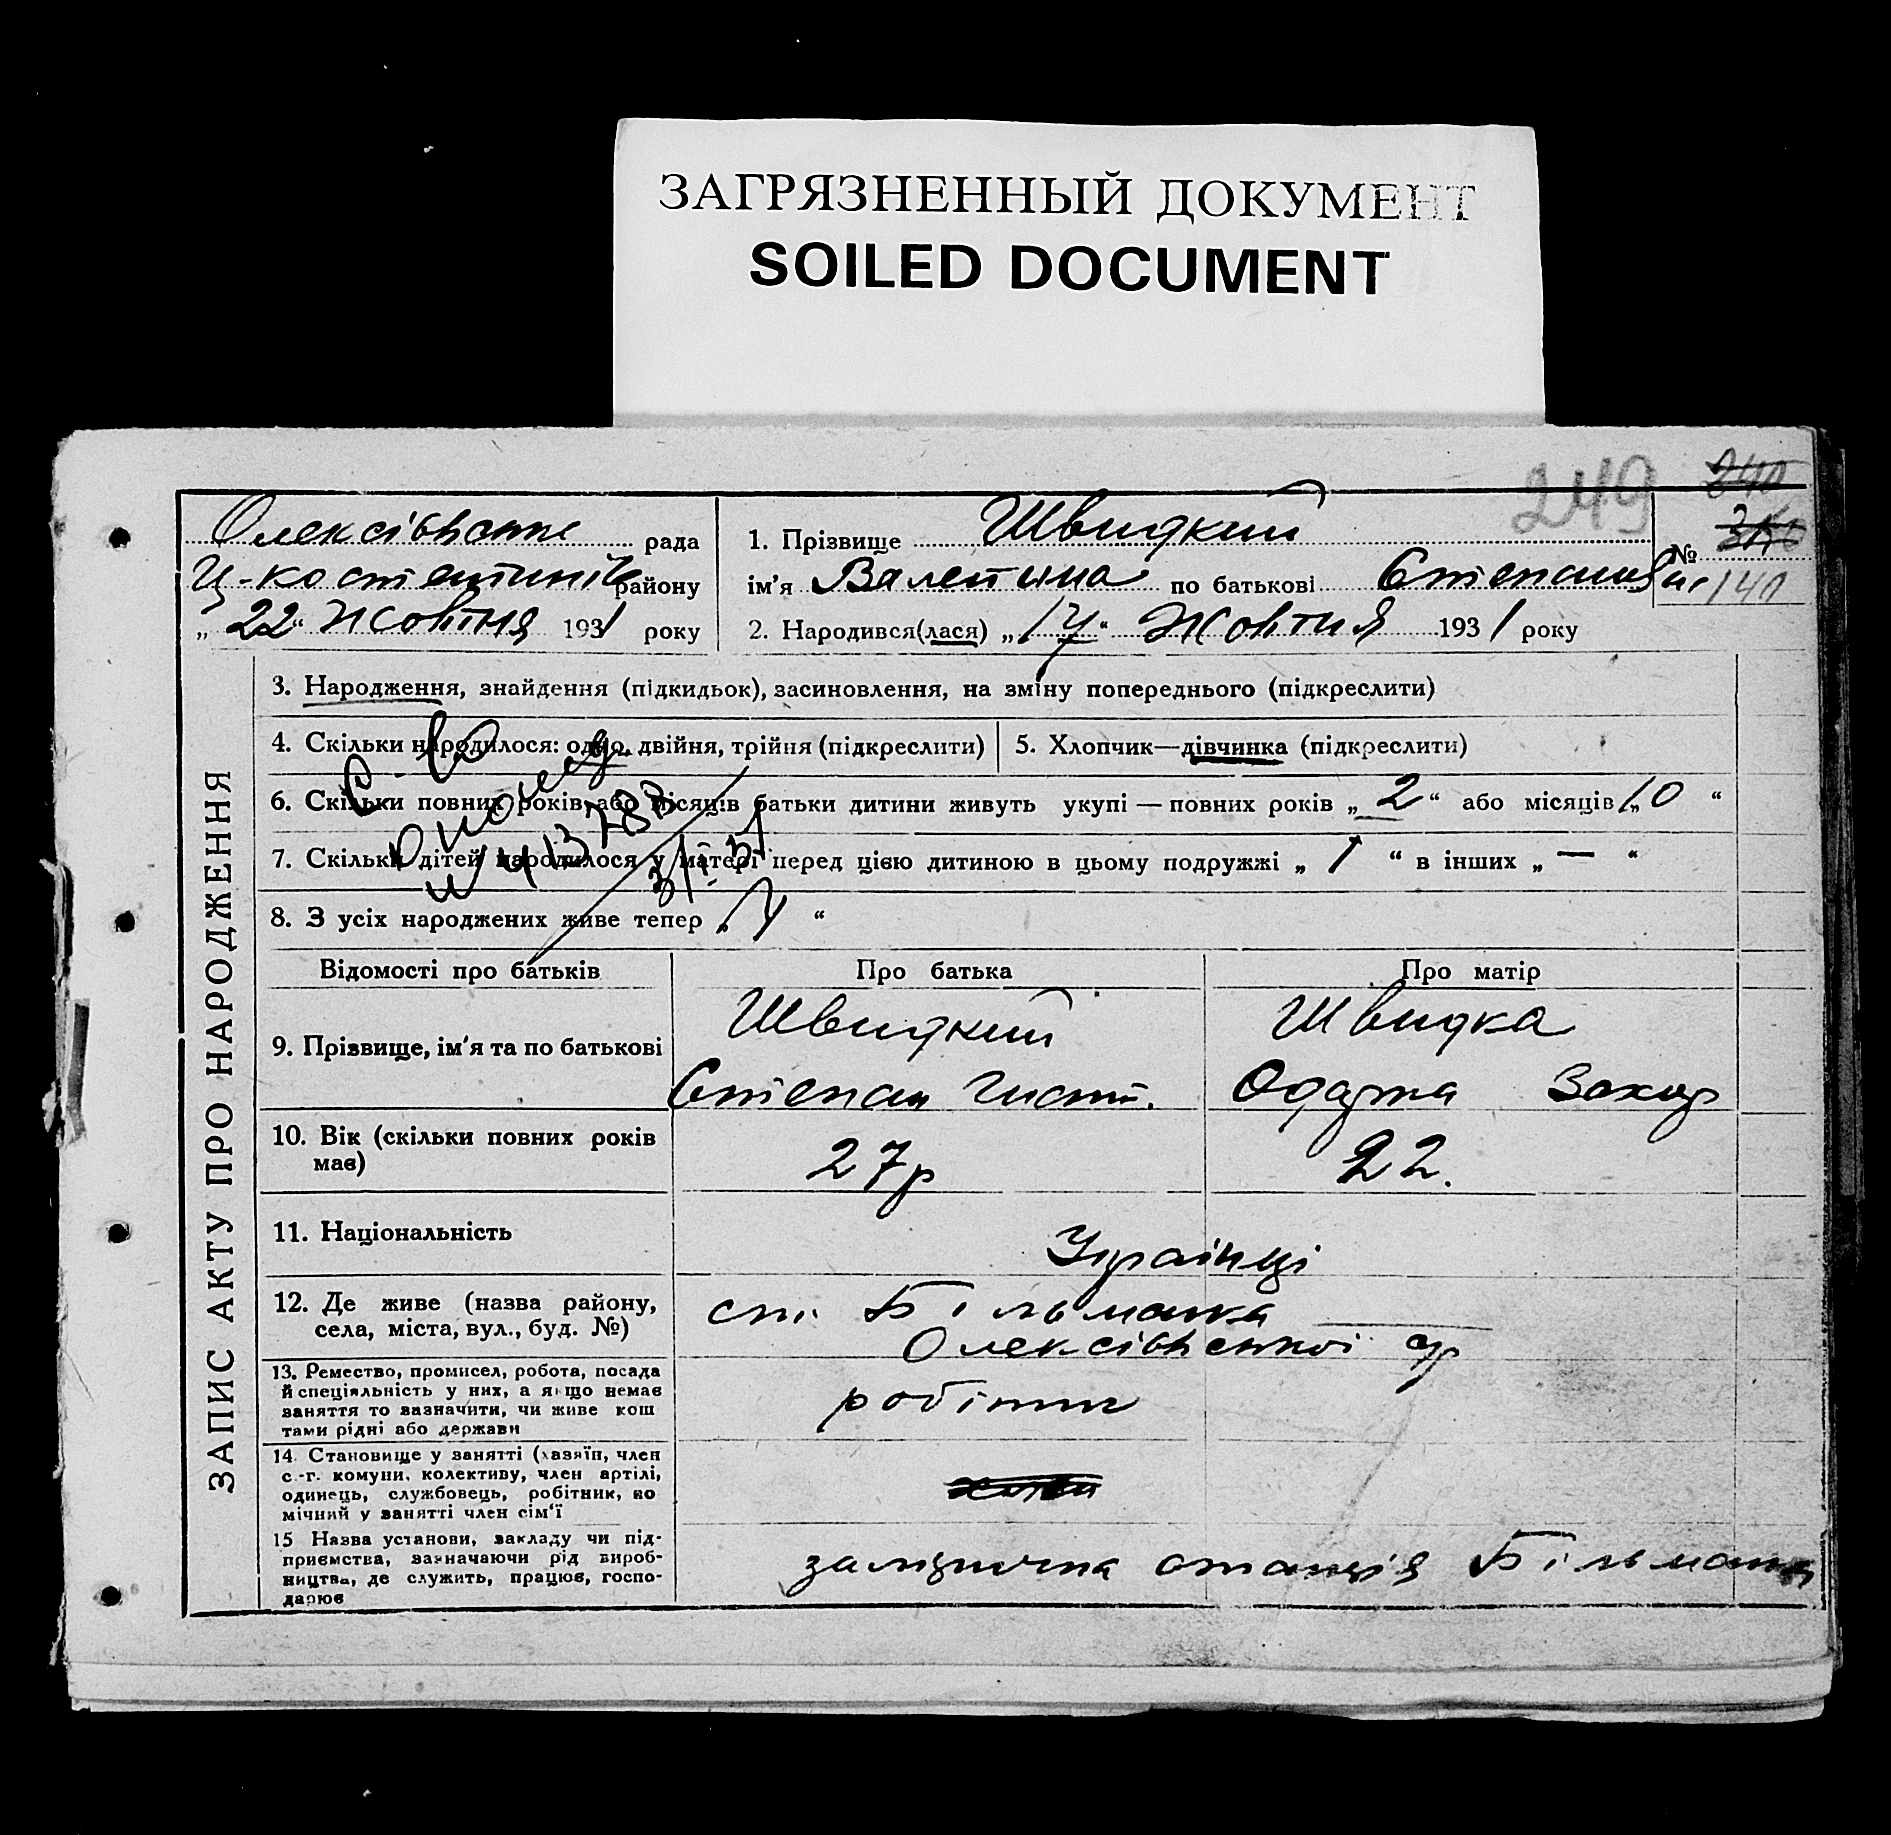 ЗАГРЯЗНЕННЫЙ ДОКУМЕНТ
SOILED DOCUMENT
249
240
ЗАПИС АКТУ ПРО НАРОДЖЕННЯ
рада
району
„22“ Жовтня 1931 року
1. Прізвище Швидкий
ім'я Валентина по батькові
2. Народився(лася) „17“ Жовтня 1931 року
№ 140
3. Народження, знайдення (підкидьок), засиновлення, на зміну попереднього (підкреслити)
4. Скільки народилося: одно, двійня, трійня (підкреслити)
5. Хлопчик—дівчинка (підкреслити)
6. Скільки повних років або місяців батьки дитини живуть укупі — повних років „2“ або місяців „10“
7. Скільки дітей народилося у матері перед цією дитиною в цьому подружжі „1“ в інших „—“
8. З усіх народжених живе тепер
Відомості про батьків
Про батька
Про матір
9. Прізвище, ім'я та по батькові
Швидкий
Степан
Швидка
Одарка Захар
10. Вік (скільки повних років має)
27р
22.
11. Національність
Українці
12. Де живе (назва району,
села, міста, вул., буд. №)
ст. Більманка
Олексівської
13. Ремество, промисел, робота, посада
й спеціяльність у них, а якщо немає
заняття то зазначити, чи живе кош
тами рідні або держави
робітник
14. Становище у занятті (хазяїн, член
с.-г. комуни, колективу, член артілі,
одинець, службовець, робітник, по
мічний у занятті член сім'ї
15 Назва установи, закладу чи під-
приємства, зазначаючи рід вироб-
ництва, де служить, працює, госпо-
дарює
залізнична станція Більманка